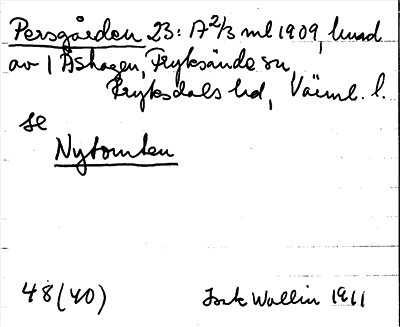 Persgården 23: A 2/3 mtl 1909, hmd
av 1 Åshagen, Fryksände sn,
Fryksdals hd, Värml. l.
se
Nytomten
48 (40) Wallin 1911